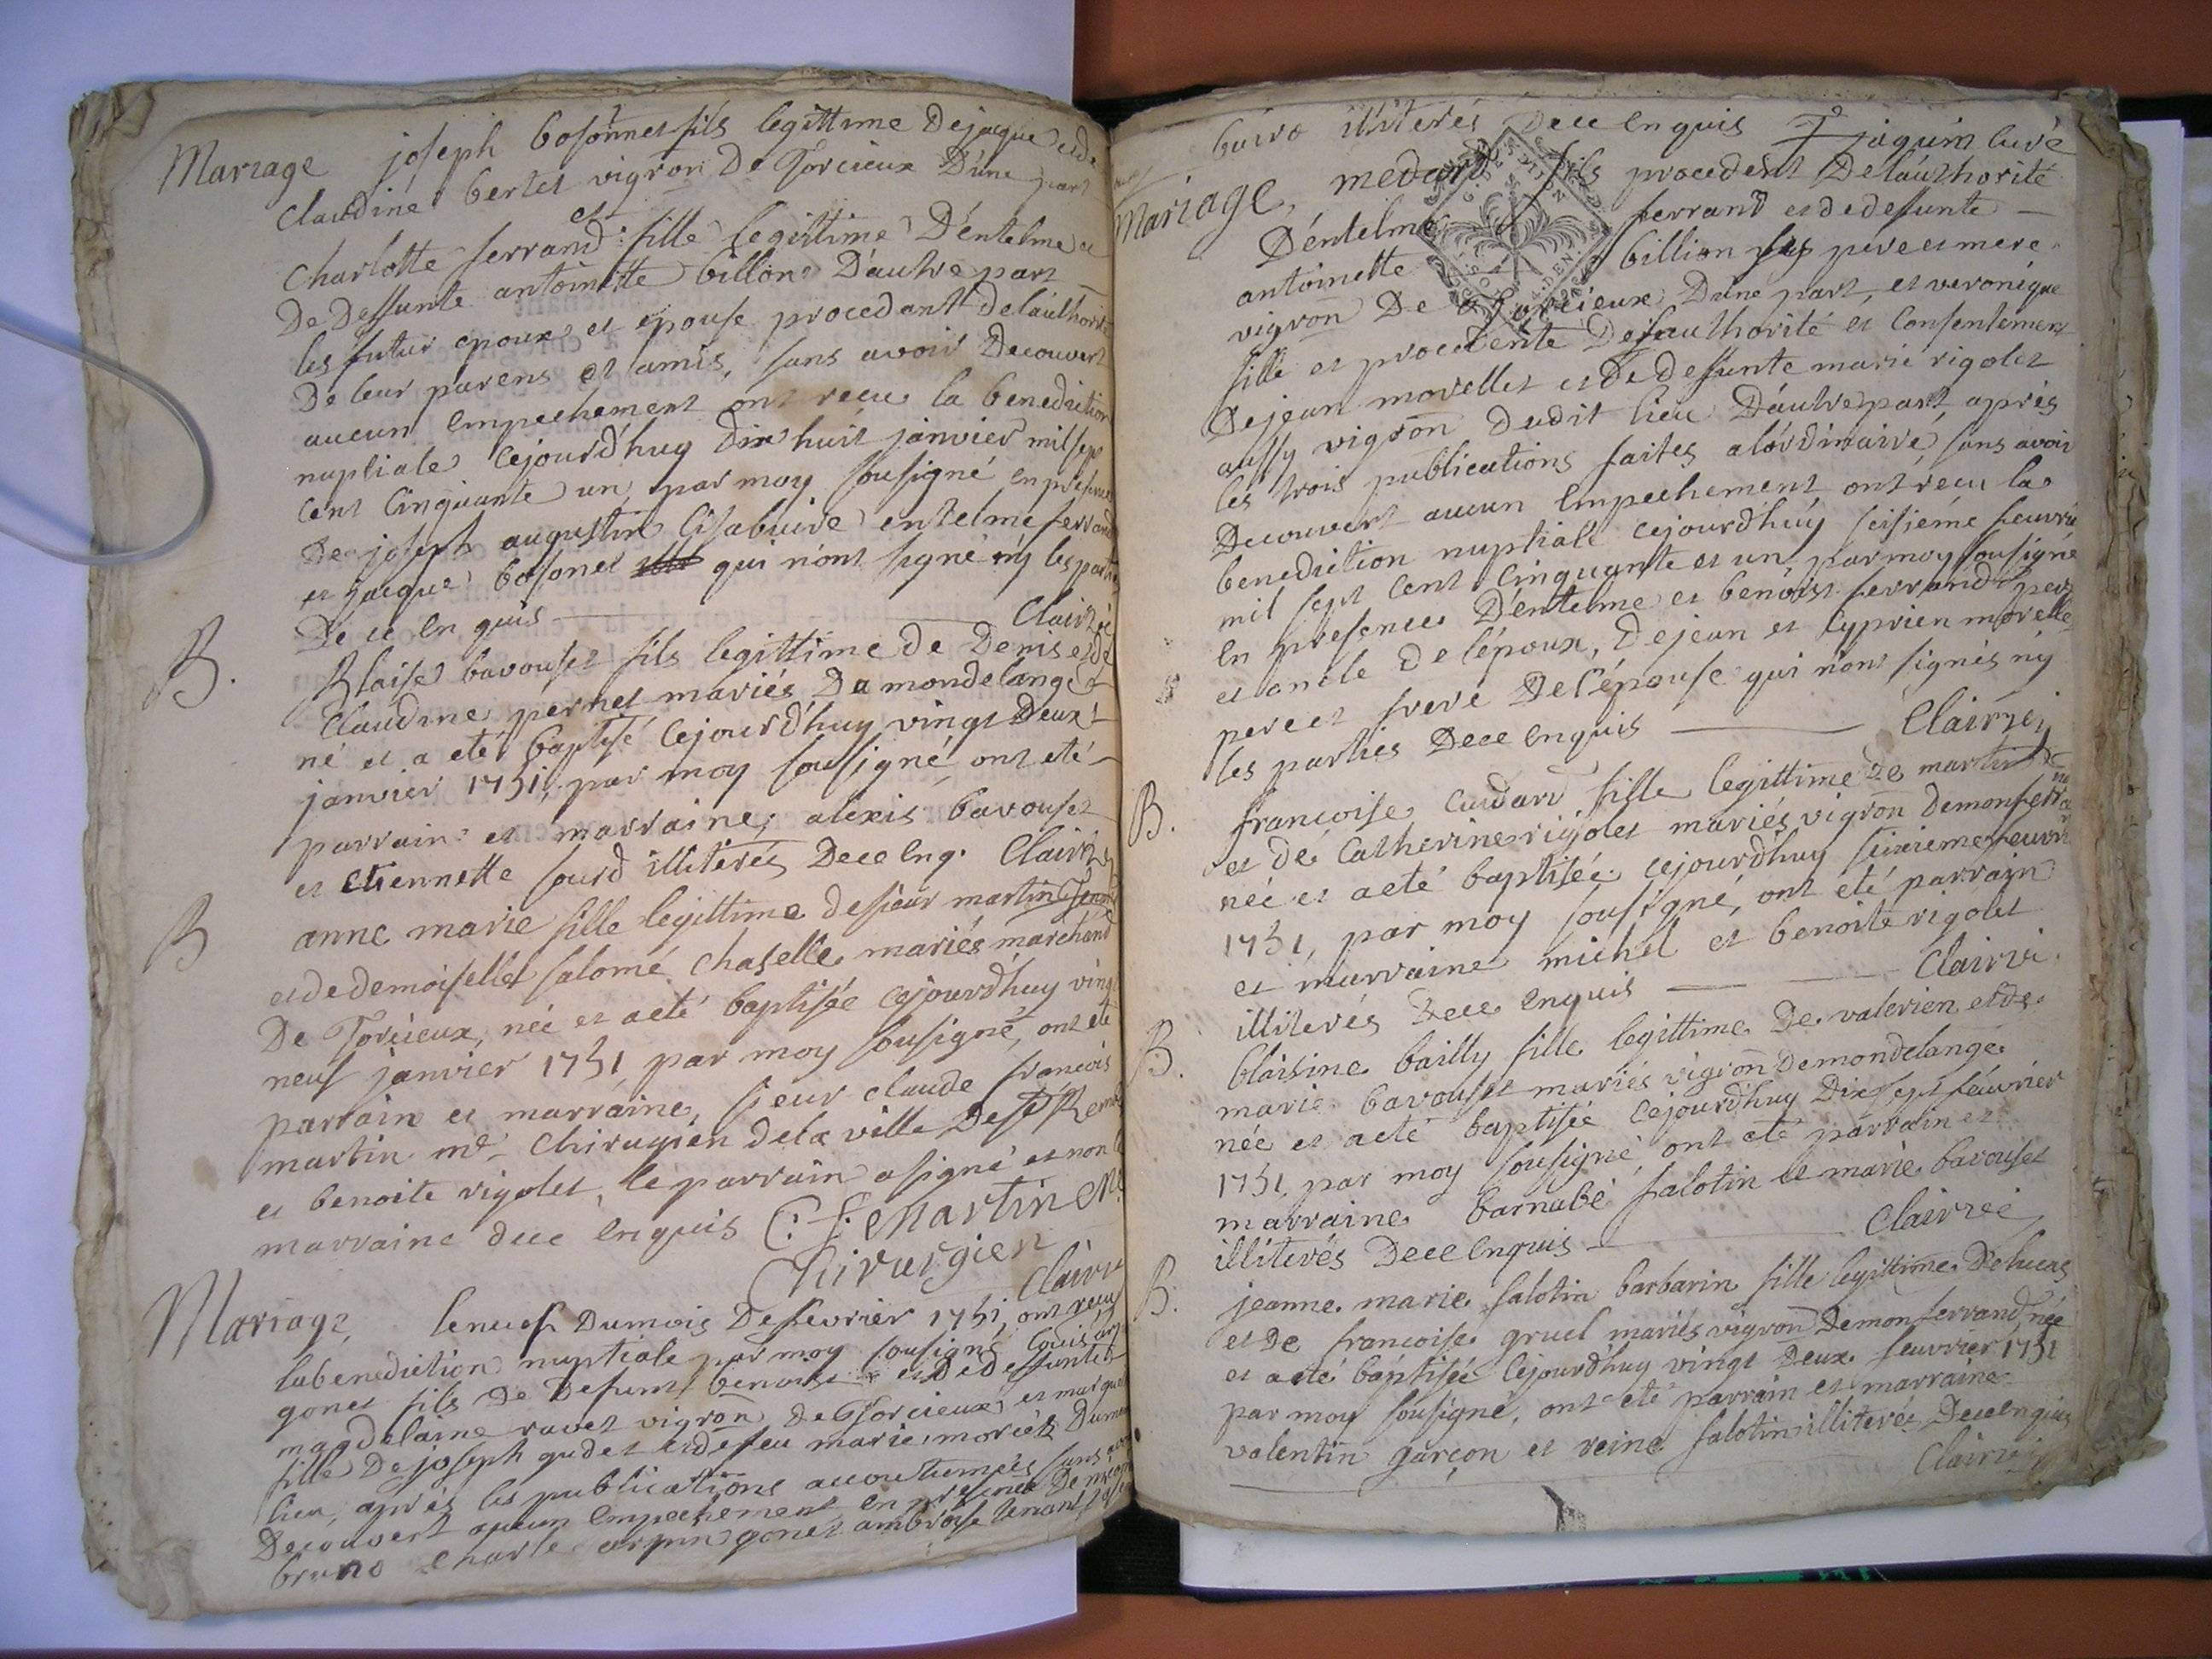 Mariage joseph bosonnet fils legittime de jacque et de
claudine bertet vigron de Torcieux d'une part
et
charlotte ferrand fille legittime d'entelme et
de deffunte antoinette billion d'autre part
les futur epoux et epouse procedant de lauthorité
de leur parens et amis, sans avoir decouvert
aucun empechement ont recu la benediction
nuptiale cejourd'huy dix huit janvier mil sept
cent cinquante un, par moy sousigné en presence
de joseph augustin entelme ferrand
et jacque bosonet qui n'ont signé ny les parties
de ce enquis
B. Blaise bavouset fils legittime de denis et de
claudine pernet mariés de mondelange
né et a eté baptisé cejourd'huy vingt deux
janvier 1751, par moy sousigné, ont eté
parrain et marraine, alexis bavouset
et etiennette sourd illiterés de ce enq.
B anne marie fille legittime de sieur martin
et de demoiselle salomé chaselle mariés marchand
de Torcieux, née et a eté baptisée cejourd'huy vingt
neuf janvier 1751 par moy sousigné, ont eté
parrain et marraine, sieur claude francois
martin me chirugien dela ville de st
et benoite rigolet, le parrain a signé et non la
marraine de ce enquis C: f: Martin
Chirurgien
Mariage, le neuf du mois de fevrier 1751, ont recu
la benediction nuptiale par moy sousigné louis
gonet fils de defunt benoist et de deffunte
magdelaine ravet vigron de Torcieux et
fille de joseph gudet et de feu marie du meme
lieu, après les publications accoutumées sans avoir
decouvert aucun empechement en presence de
bruno charle gonet ambroise
illiterés de ce enquis jaquin curé
Mariage, medard fils procedent de lauthorité
d'entelme ferrand et de defunte
antoinette billion ses pere et mere
vigron de Torcieux d'une part, et veronique
fille et procedente de lauthorité et consentement
de jean morellet et de deffunte marie rigolet
aussy vigron dudit lieu d'autre part, après
les trois publications faites a lordinaire, sans avoir
decouvert aucun empechement, ont recu la
benediction nuptiale cejourd'huy seisiéme feuvrier
mil sept cent cinquante et un par moy sousigné
en presence d'entelme et benoist ferrand pere
et oncle de l'époux, de jean et cyprien morellet
pere et frere de l'épouse qui n'ont signés ny
les parties de ce enquis
B. francoise cudard fille legittime de martin
et de catherine rigolet mariés vigron de monferrand
née et a eté baptisée cejourd'huy seixieme feuvrier
1751, par moy sousigné, ont eté parrain
et marraine michel et benoite rigolet
illiterés de ce enquis
B. blaisine bailly fille legittime de valerien et de
marie bavouset mariés vigron de mondelange
née et a eté baptisée cejourd'huy dix sept feuvrier
1751, par moy sousigné, ont eté parrain et
marraine barnabé falotin et marie bavouset
illiterés de ce enquis
B. jeanne marie falotin barbarin fille legittime de lucas
et de francoise gruel mariés vigron de monferrand, née
et a eté baptisée cejourd'huy vingt deux feuvrier 1751
par moy sousigné, ont eté parrain et marraine
valentin garçon et reine falotin illiterés de ce enquis